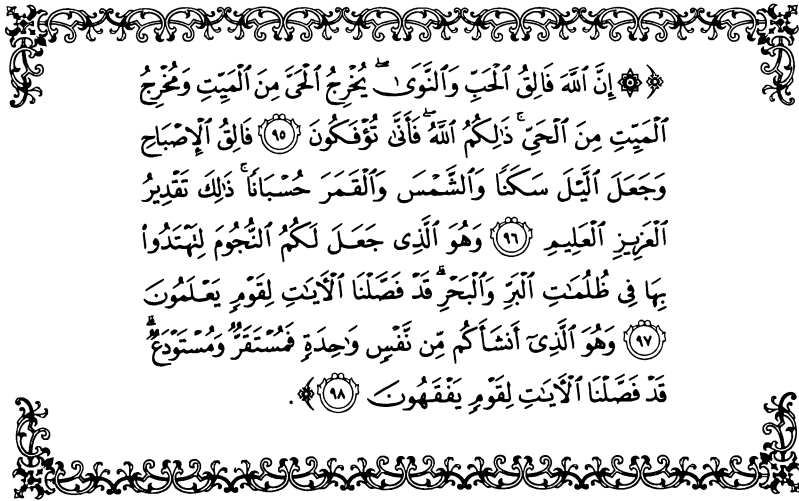 ﴿۞ إِنَّ اللَّهَ فَالِقُ الْحَبِّ وَالنَّوَىٰ ۖ يُخْرِجُ الْحَيَّ مِنَ الْمَيِّتِ وَمُخْرِجُ
الْمَيِّتِ مِنَ الْحَيِّ ۚ ذَٰلِكُمُ اللَّهُ ۖ فَأَنَّىٰ تُؤْفَكُونَ ٩٥ فَالِقُ الْإِصْبَاحِ
وَجَعَلَ الَّيْلَ سَكَنًا وَالشَّمْسَ وَالْقَمَرَ حُسْبَانًا ۚ ذَٰلِكَ تَقْدِيرُ
الْعَزِيزِ الْعَلِيمِ ٩٦ وَهُوَ الَّذِي جَعَلَ لَكُمُ النُّجُومَ لِتَهْتَدُوا
بِهَا فِي ظُلُمَاتِ الْبَرِّ وَالْبَحْرِ ۗ قَدْ فَصَّلْنَا الْآيَاتِ لِقَوْمٍ يَعْلَمُونَ
٩٧ وَهُوَ الَّذِي أَنشَأَكُم مِّن نَّفْسٍ وَاحِدَةٍ فَمُسْتَقَرٌّ وَمُسْتَوْدَعٌ ۗ
قَدْ فَصَّلْنَا الْآيَاتِ لِقَوْمٍ يَفْقَهُونَ ٩٨﴾.